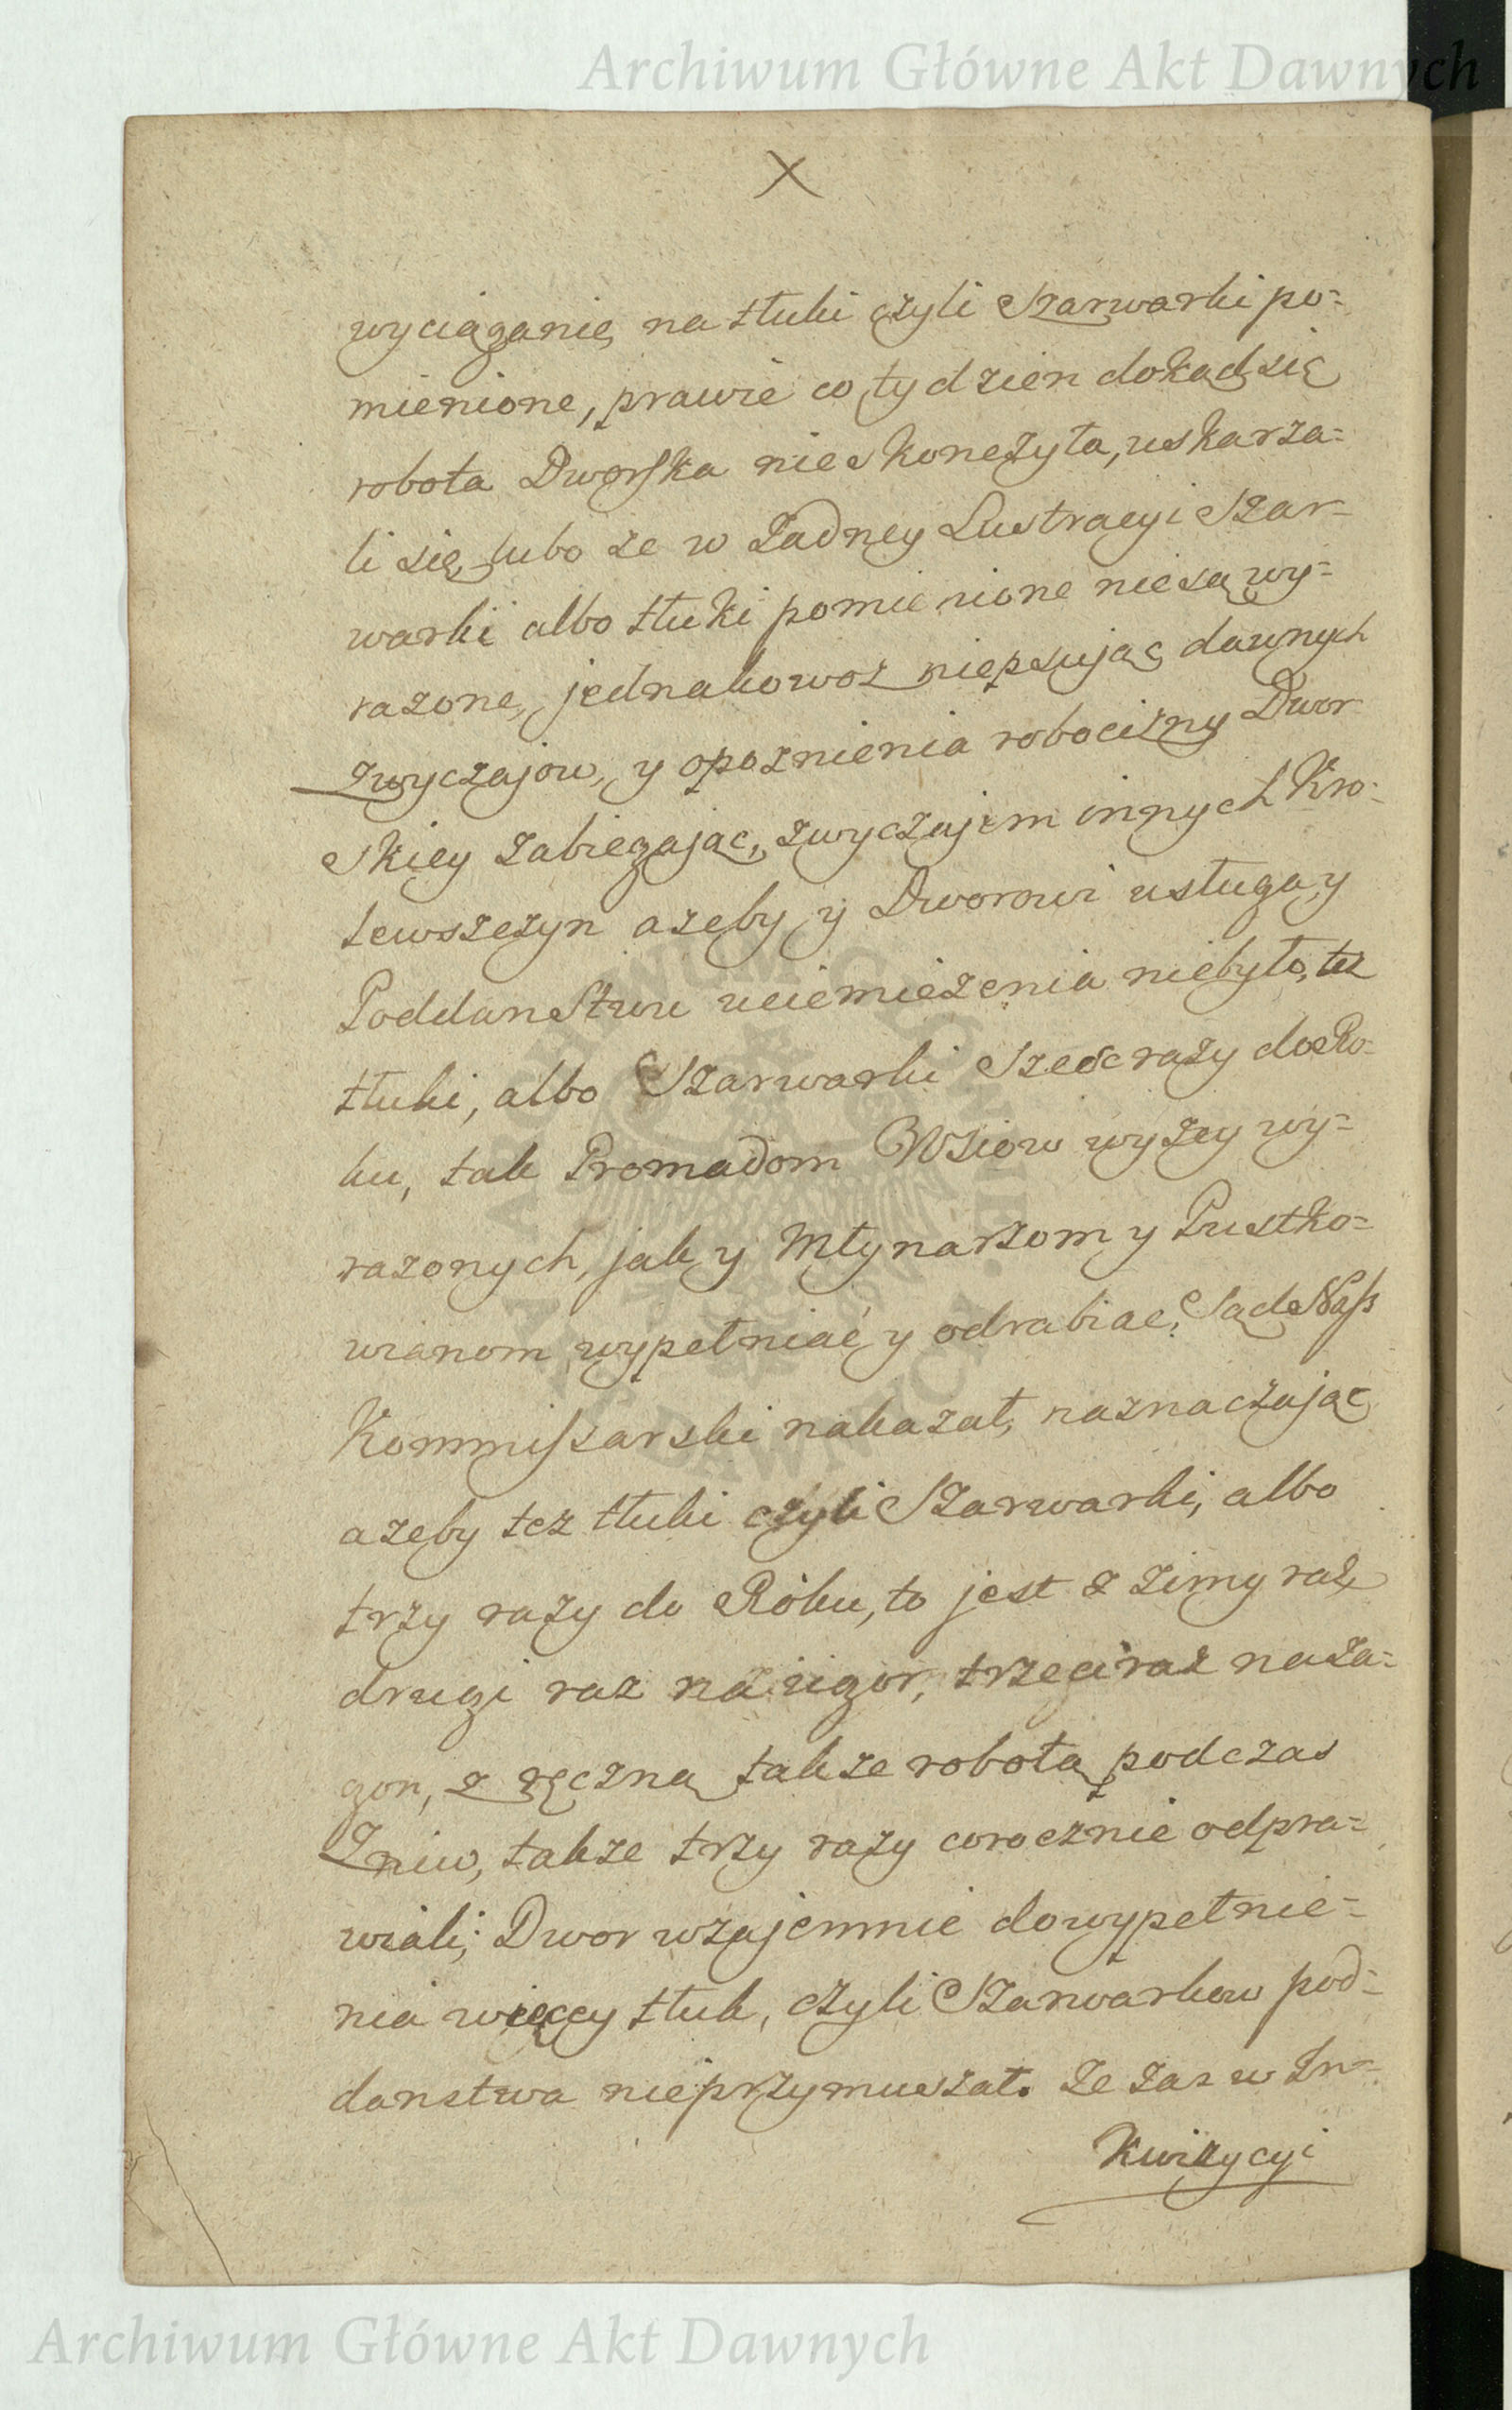 Archiwum Główne Akt Dawnych
X
wyciąganie na tłuki czyli Szarwarki po=
mienione, prawie co tydzien dokąd się
robota Dworska nieskonczyła, uskarza=
li się, lubo ze w Zadney Lustracyi Szar-
warki albo tłuki pomienione niesą wy=
razone, jednakowoz niepsując dawnych
zwyczajow, y opoznienia robocizny Dwor
skiey zabiegając, zwyczajem innych Kro=
lewszczyn azeby y Dworowi usługa, y
Poddanstwu uciemiezenia niebyło, tez
tłuki, albo Szarwarki Szesc razy do Ro=
ku, tak Gromadom Wsiow wyzey wy=
razonych, jak y Młynarzom y Pustko=
wianom wypełniać y odrabiac, Sąd Nasz
Kommissarski nakazał, naznaczając
azeby tez tłuki czyli Szarwarki, albo
trzy razy do Roku, to jest z zimy raz,
drugi raz na ugor, trzeci raz na za=
gon, z ręczną takze robotą podczas
Zniw, takze trzy razy corocznie odpra=
wiali; Dwor wzajemnie do wypełnie=
nia więcey tłuk, czyli Szarwarkow pod=
danstwa nieprzymuszał. Ze zas w In=
kwizycyi
ARCHIWUM GŁÓWNE AKT DAWNYCH
Archiwum Główne Akt Dawnych